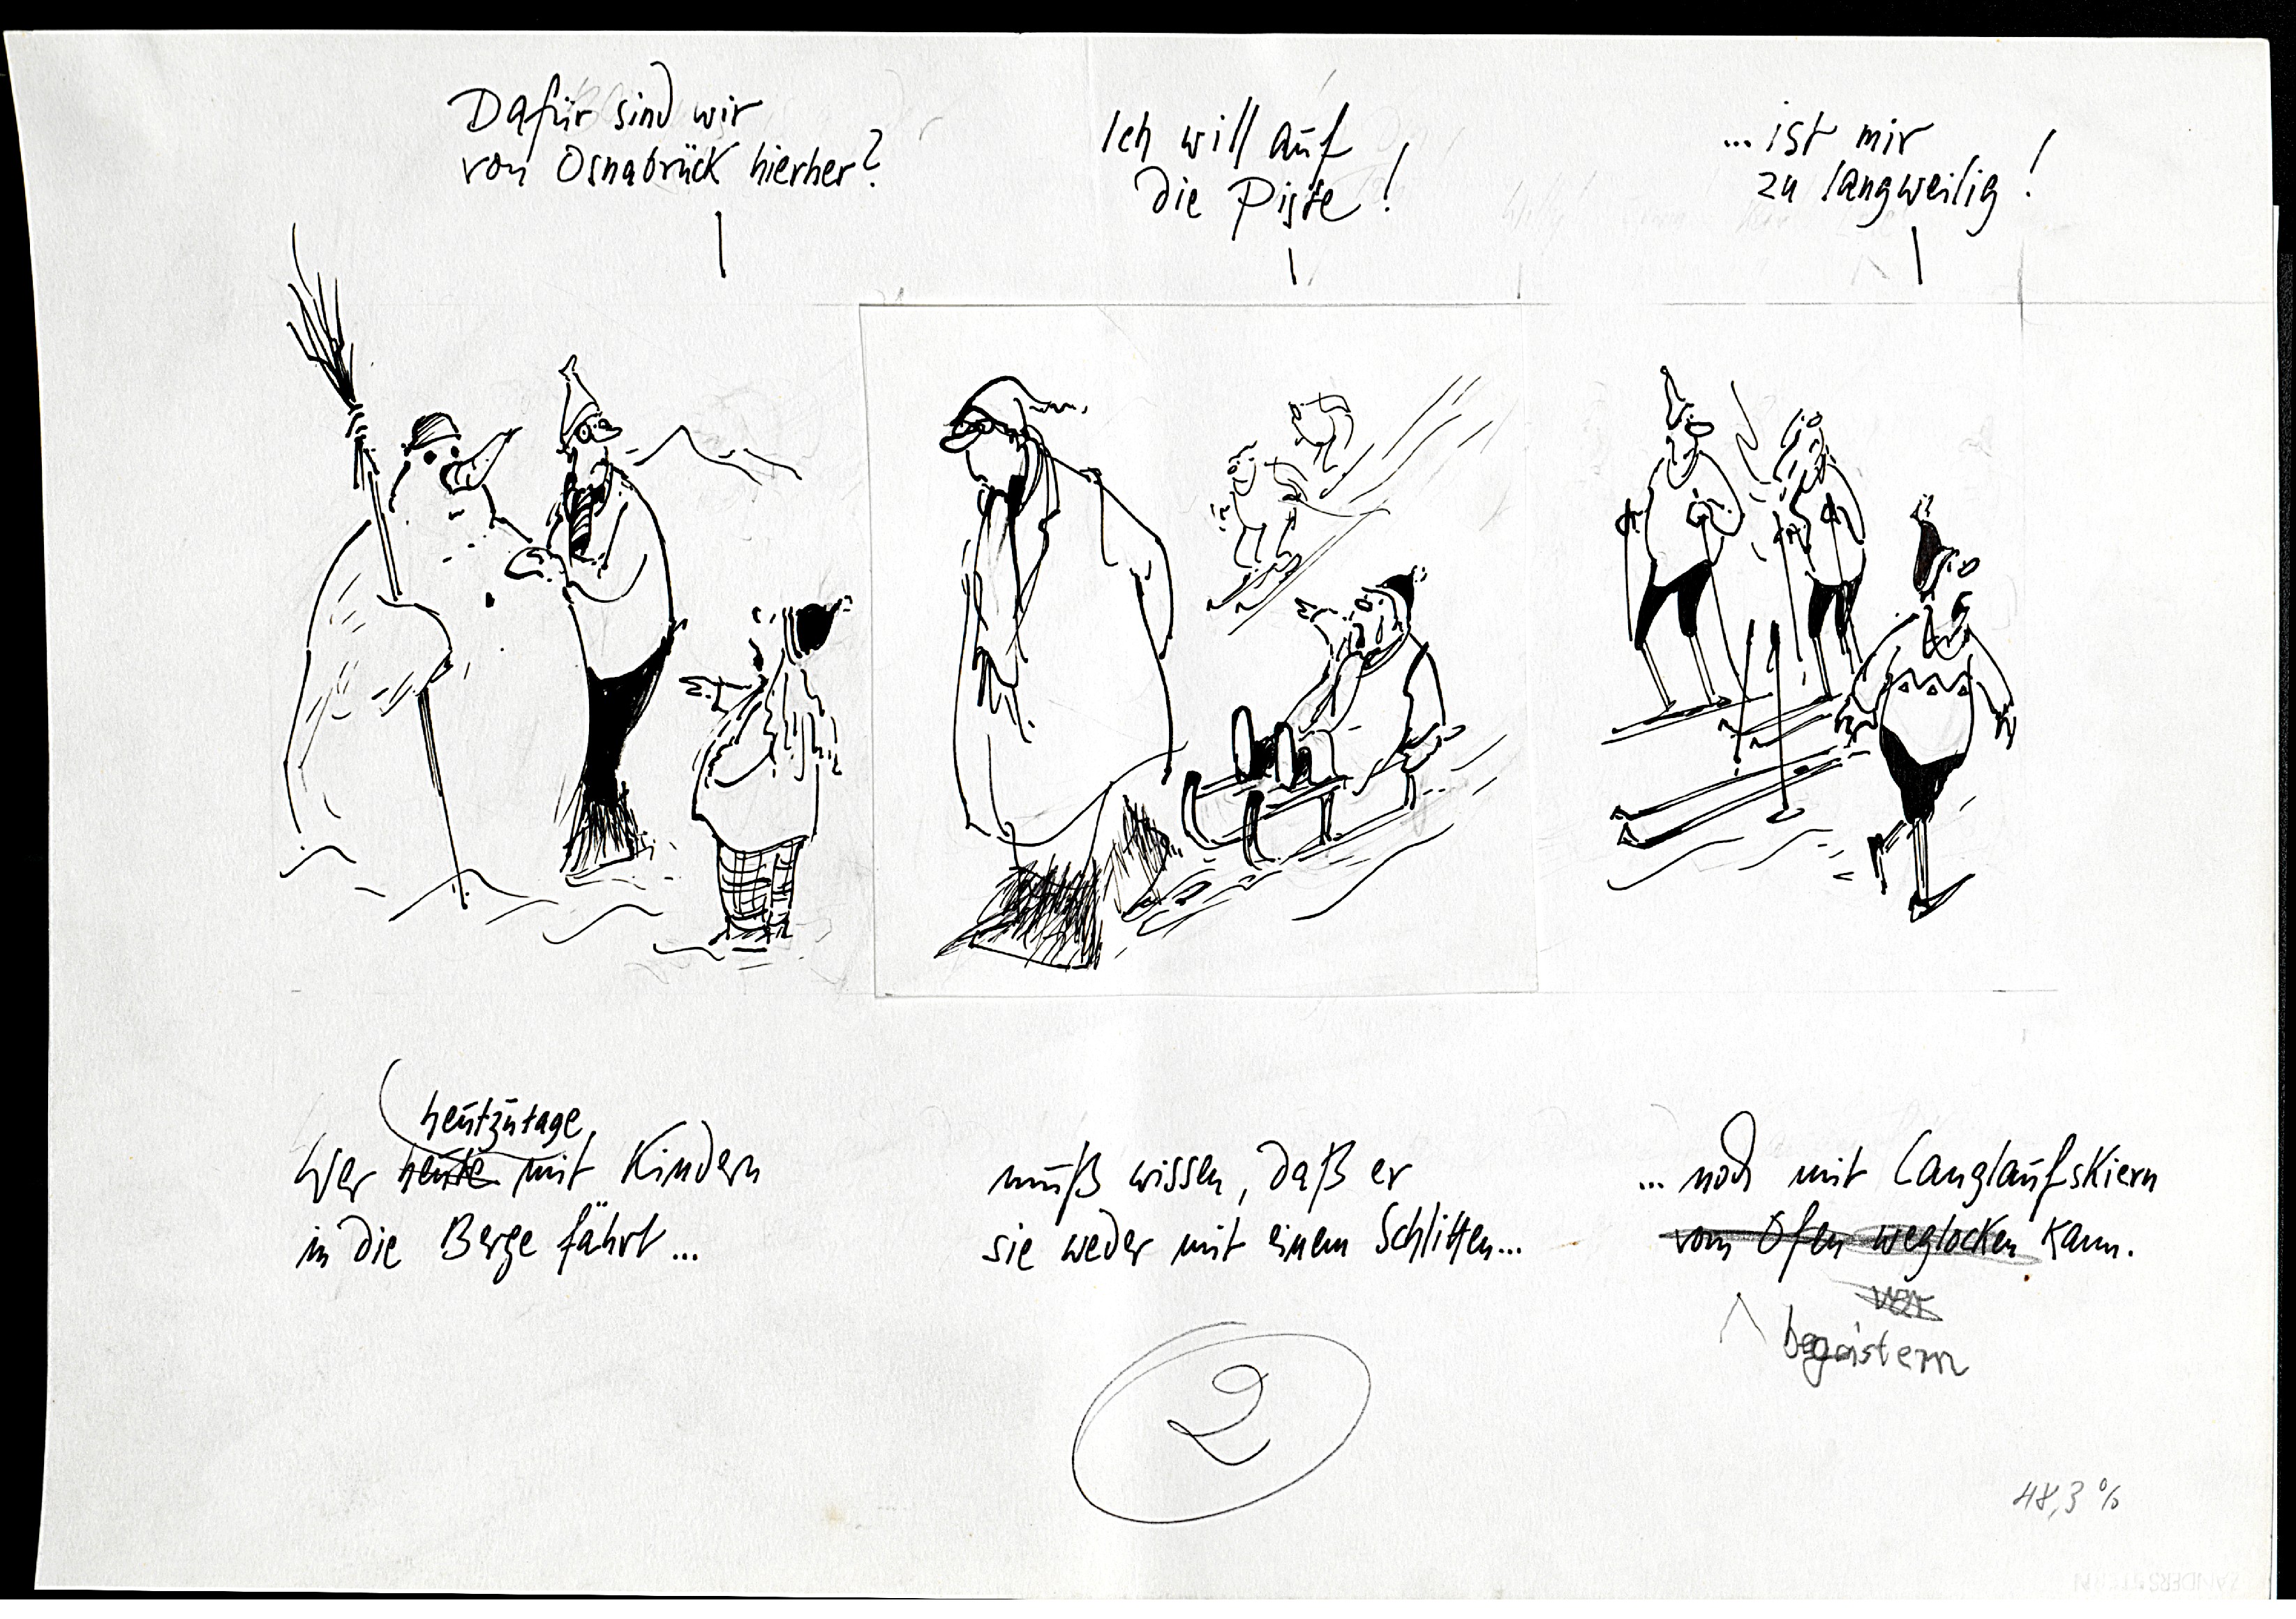 Dafür sind wir
von Osnabrück hierher?
Ich will auf
die Piste!
...ist mir
zu langweilig!
heutzutage
Wer heute mit Kindern
in die Berge fährt...
muß wissen, daß er
sie weder mit einem Schlitten...
... noch mit Langlaufskiern
vom Ofen weglocken kann.
begeistern
2
48,3 %
ZANDERS